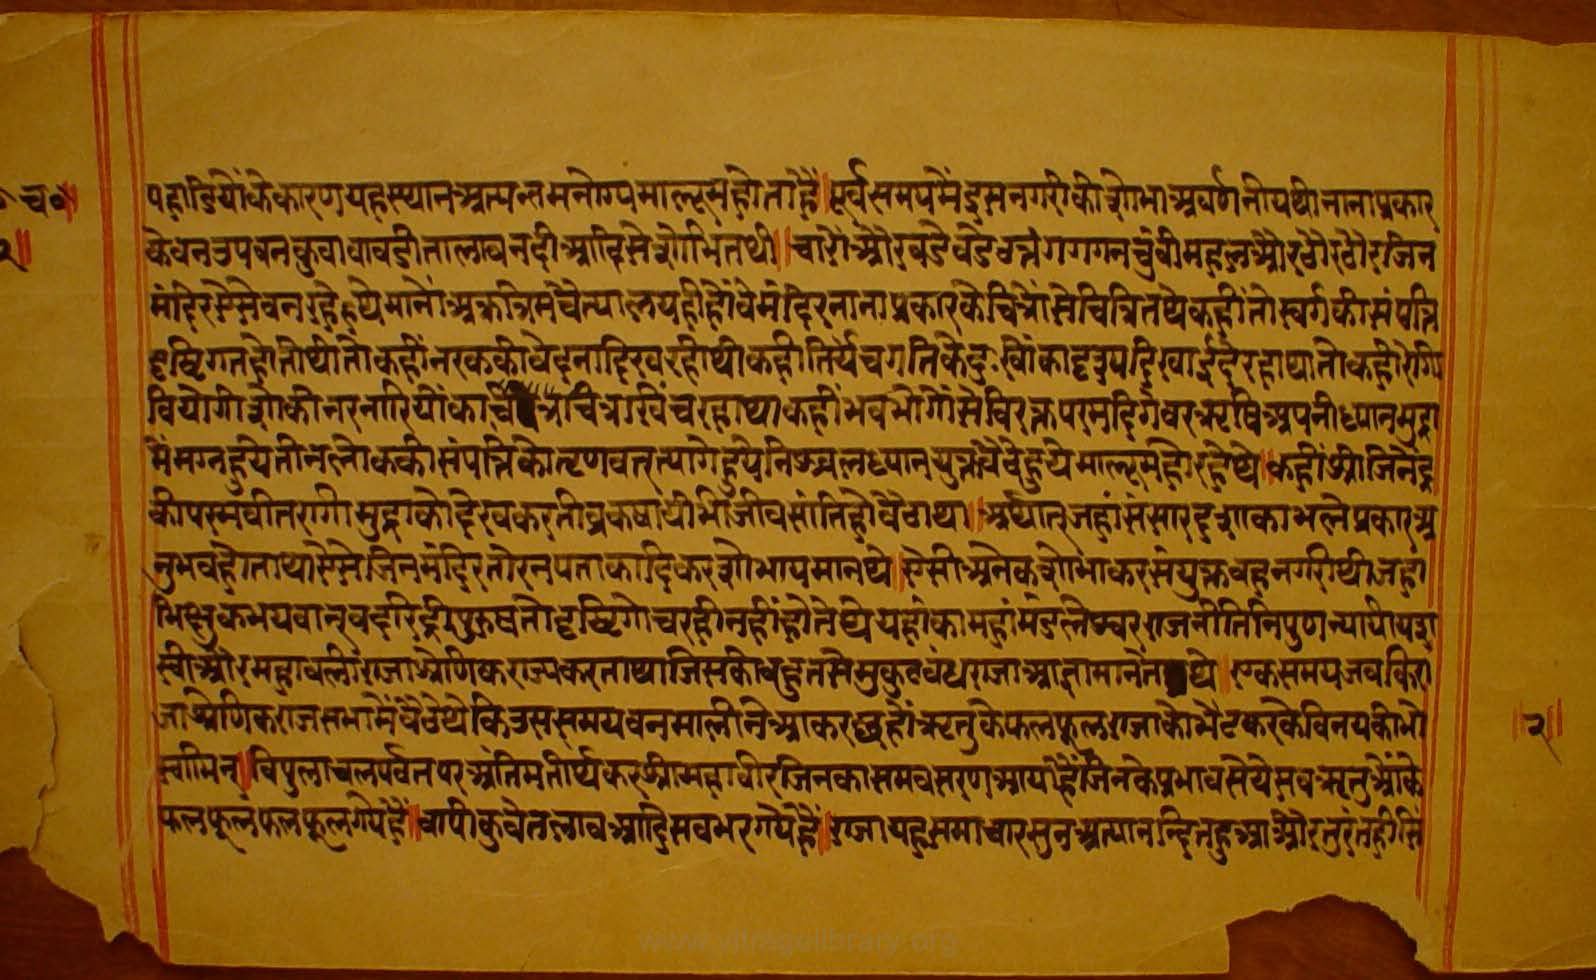 च॰॥
२॥
पहाडियों के कारण यह स्थान अत्यन्त मनोग्य मालूम होता है॥ पूर्व समय में इस नगरी की शोभा अवर्णनीय थी नाना प्रकार
के वन उपवन कुवा वावडी तालाव नदी आदि से शोभित थी॥ चारों और वडे वडे उत्तंग गगन चुंवी महल और ठौर ठौर जिन
मंदिर ऐसे वन रहे हूये मानों अक्रत्रिम चैत्यालय ही हों वे मंदिर नाना प्रकार के चित्रों से चित्रित थे कहीं तो स्वर्ग की संपत्ति
दृष्टिगत होती थी तो कहीं नरक की वेदना दिख रही थी कही तिर्यंच गति के दुःखों का दृश्य दिखाई दे रहा था तो कही रोगी
वियोगी शोकी नर नारियों का चित्राखिंच रहा था कहीं भव भोगों से विरक्त परम दिगंवर ऋषि अपनी ध्यान मुद्रा
में मग्न हुये तीन लोक की संपत्ति को तृणवत् त्यागे हुये निश्चल ध्यान युक्त वैठे हुये मालूम हो रहे थे॥ कहीं श्री जिनेंद्र
की परम वीतरागी मुद्रा को देख कर तीव्र कषायी भी जीव सांति हो वैठा था॥ अर्थात् जहां संसार दशा का भले प्रकार अ
नुभव होता था ऐसे जिन मंदिर तोरन पताकादि कर शोभायमान थे॥ ऐसी अनेक शोभा कर संयुक्त वह नगरी थी जहा
भिक्षुक भयवान् व दरिद्री पुरुष तो दृष्टिगोचर ही नहीं होते थे यहां का महांमंडलेश्वर राजनीति निपुण न्यायी यश
स्वी और महावली राजा श्रेणिक राज्य करता था जिसकी वहुत से मुकुटवंध राजा आज्ञा मानते थे॥ एक समय जव कि रा
जा श्रेणिक राज सभा में वैठे थे कि उस समय वनमाली ने आकर छहों ऋतु के फल फूल राजा को भेट करके विनय की भो
स्वामिन्॥ विपुलाचल पर्वत पर अंतिम तीर्थंकर श्री महावीर जिन का समवसरण आया है जिनके प्रभाव से ये सव ऋतुओं के
फल फूल फल फूल गये हैं॥ वापी कुवे तलाव आदि सव भर गये हैं॥ राजा यह समाचार सुन अत्यानन्दित हुआ और तुरंत ही सिं
॥२॥
www.vitragvlibrary.org